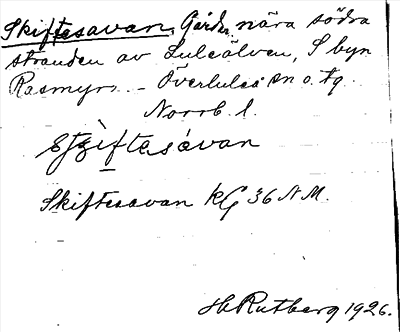 Skiftesavan, Gårdar, nära södra
stranden av Luleälven, S byn
Rasmyrs. – Överluleå sn o. tg.
Norrb. l.
Skiftesavan kG 36 N M.
H Rutberg 1926.